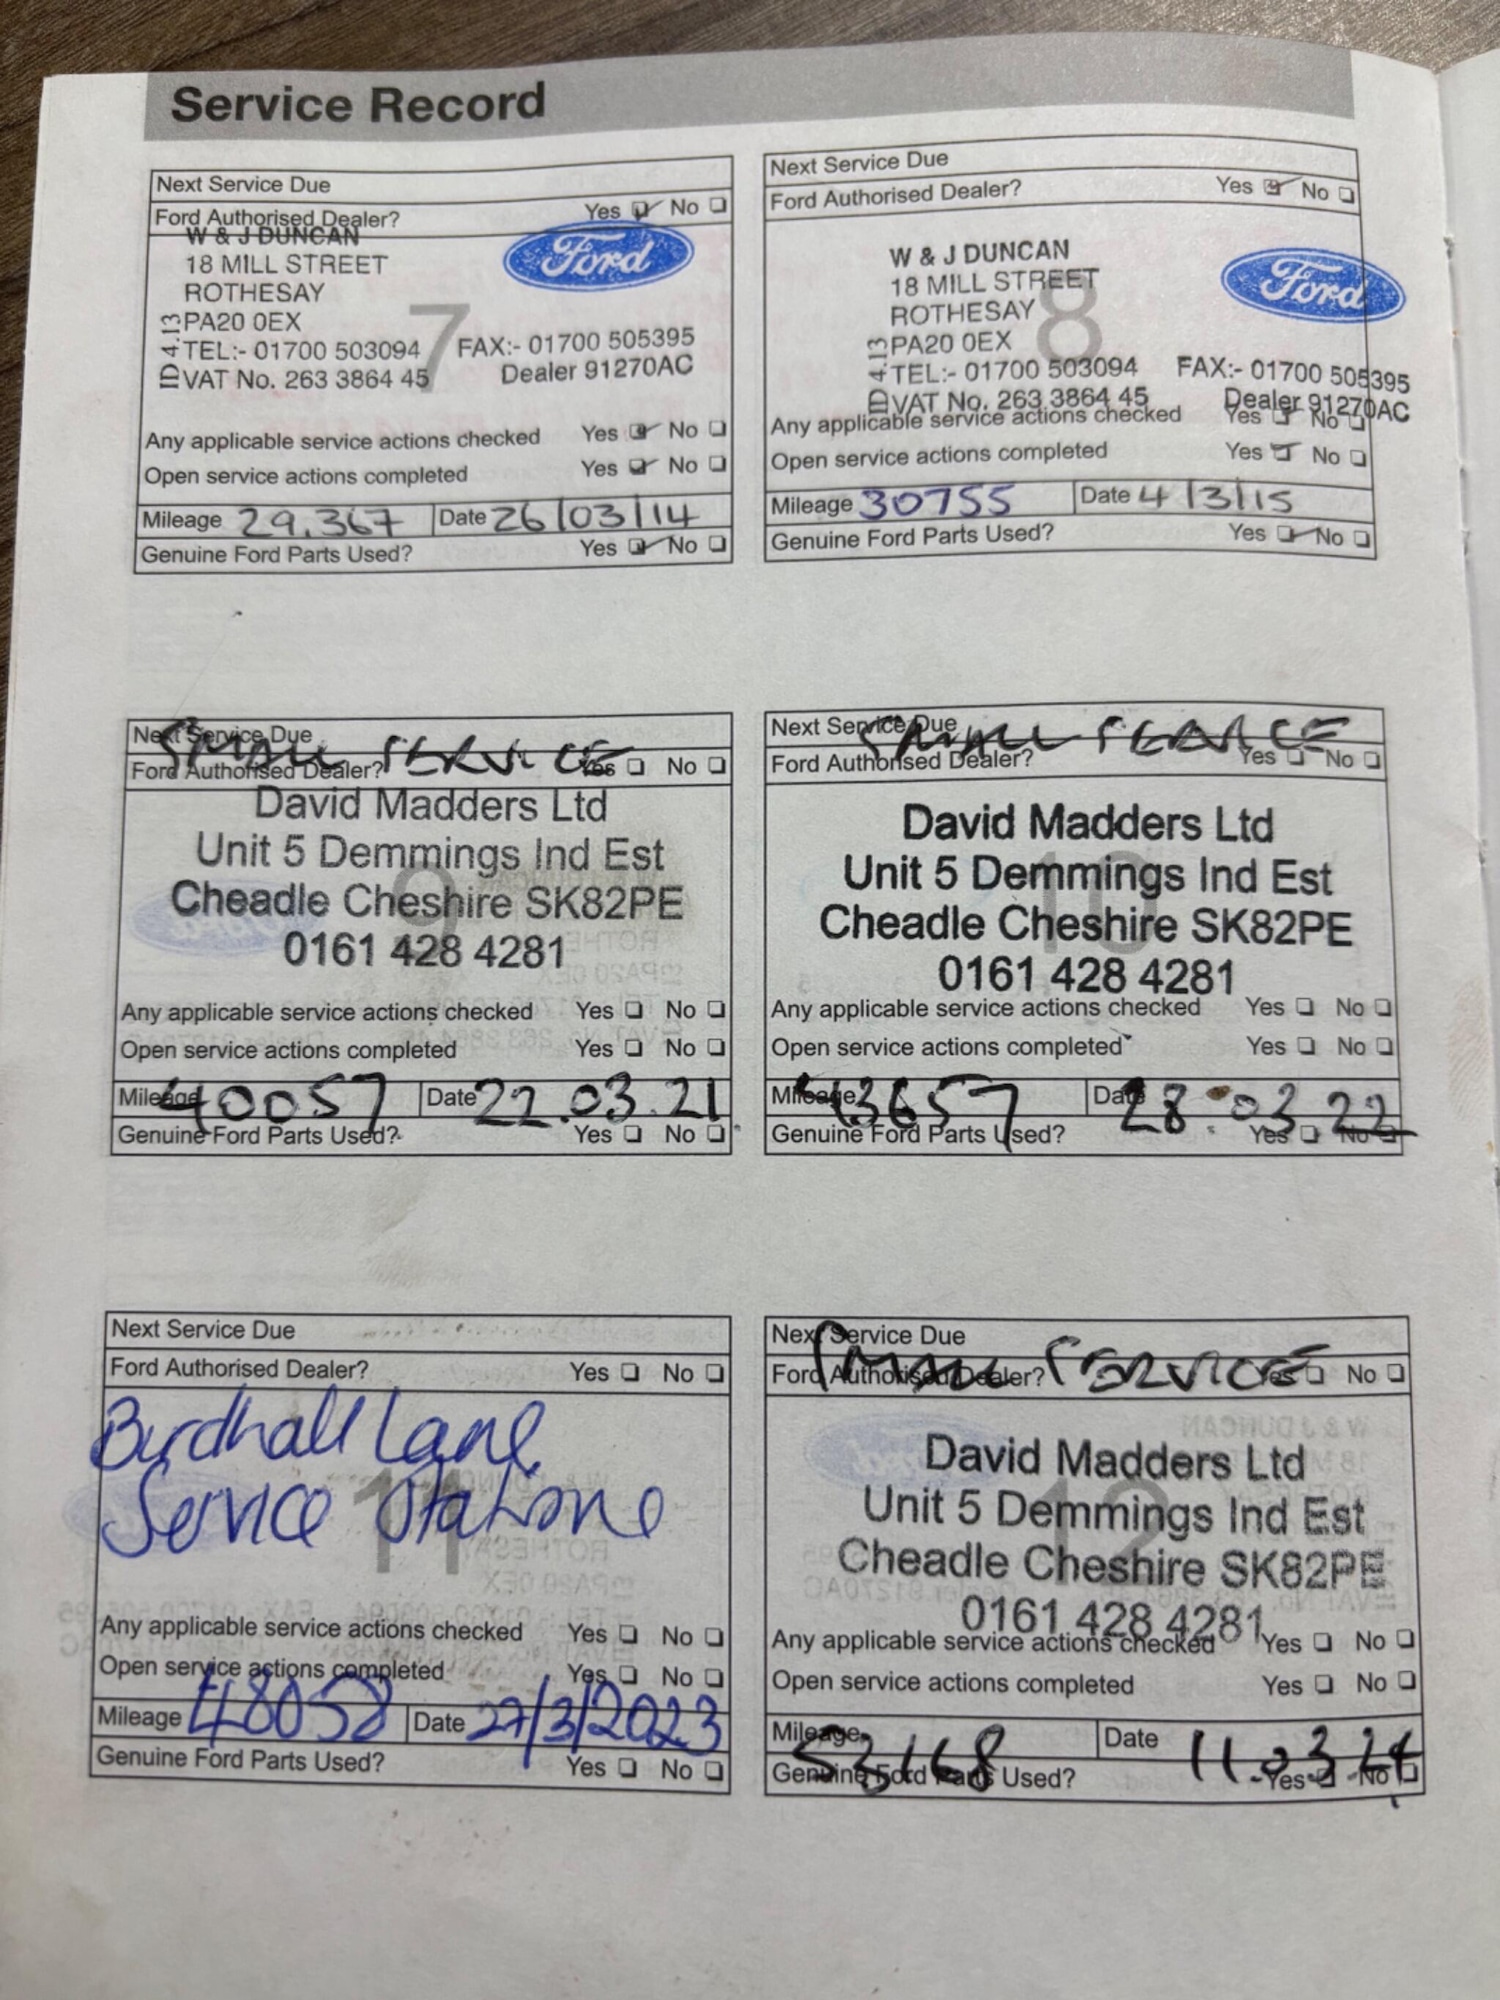 Service Record
Next Service Due
Ford Authorised Dealer? Yes No
W & J DUNCAN
Ford
18 MILL STREET
ROTHESAY
7
PA20 0EX
TEL:- 01700 503094 FAX:- 01700 505395
VAT No. 263 3864 45 Dealer 91270AC
ID 4.13
Any applicable service actions checked Yes No
Open service actions completed Yes No
Mileage 29,367 Date 26/03/14
Genuine Ford Parts Used? Yes No
Next Service Due
Ford Authorised Dealer? Yes No
W & J DUNCAN
Ford
18 MILL STREET
ROTHESAY
8
PA20 0EX
TEL:- 01700 503094 FAX:- 01700 505395
VAT No. 263 3864 45 Dealer 91270AC
ID 4.13
Any applicable service actions checked Yes No
Open service actions completed Yes No
Mileage 30755 Date 4/3/15
Genuine Ford Parts Used? Yes No
Next Service Due
SMALL SERVICE
Ford Authorised Dealer? Yes No
David Madders Ltd
Unit 5 Demmings Ind Est
9
Cheadle Cheshire SK82PE
0161 428 4281
Any applicable service actions checked Yes No
Open service actions completed Yes No
Mileage 40057 Date 22.03.21
Genuine Ford Parts Used? Yes No
Next Service Due
SMALL SERVICE
Ford Authorised Dealer? Yes No
David Madders Ltd
Unit 5 Demmings Ind Est
10
Cheadle Cheshire SK82PE
0161 428 4281
Any applicable service actions checked Yes No
Open service actions completed Yes No
Mileage 43657 Date 28.03.22
Genuine Ford Parts Used? Yes No
Next Service Due
Ford Authorised Dealer? Yes No
Birdhall Lane
Service Stations
11
Any applicable service actions checked Yes No
Open service actions completed Yes No
Mileage 48058 Date 27/3/2023
Genuine Ford Parts Used? Yes No
Next Service Due
SMALL SERVICE
Ford Authorised Dealer? Yes No
David Madders Ltd
Unit 5 Demmings Ind Est
12
Cheadle Cheshire SK82PE
0161 428 4281
Any applicable service actions checked Yes No
Open service actions completed Yes No
Mileage 53168 Date 11.03.24
Genuine Ford Parts Used? Yes No